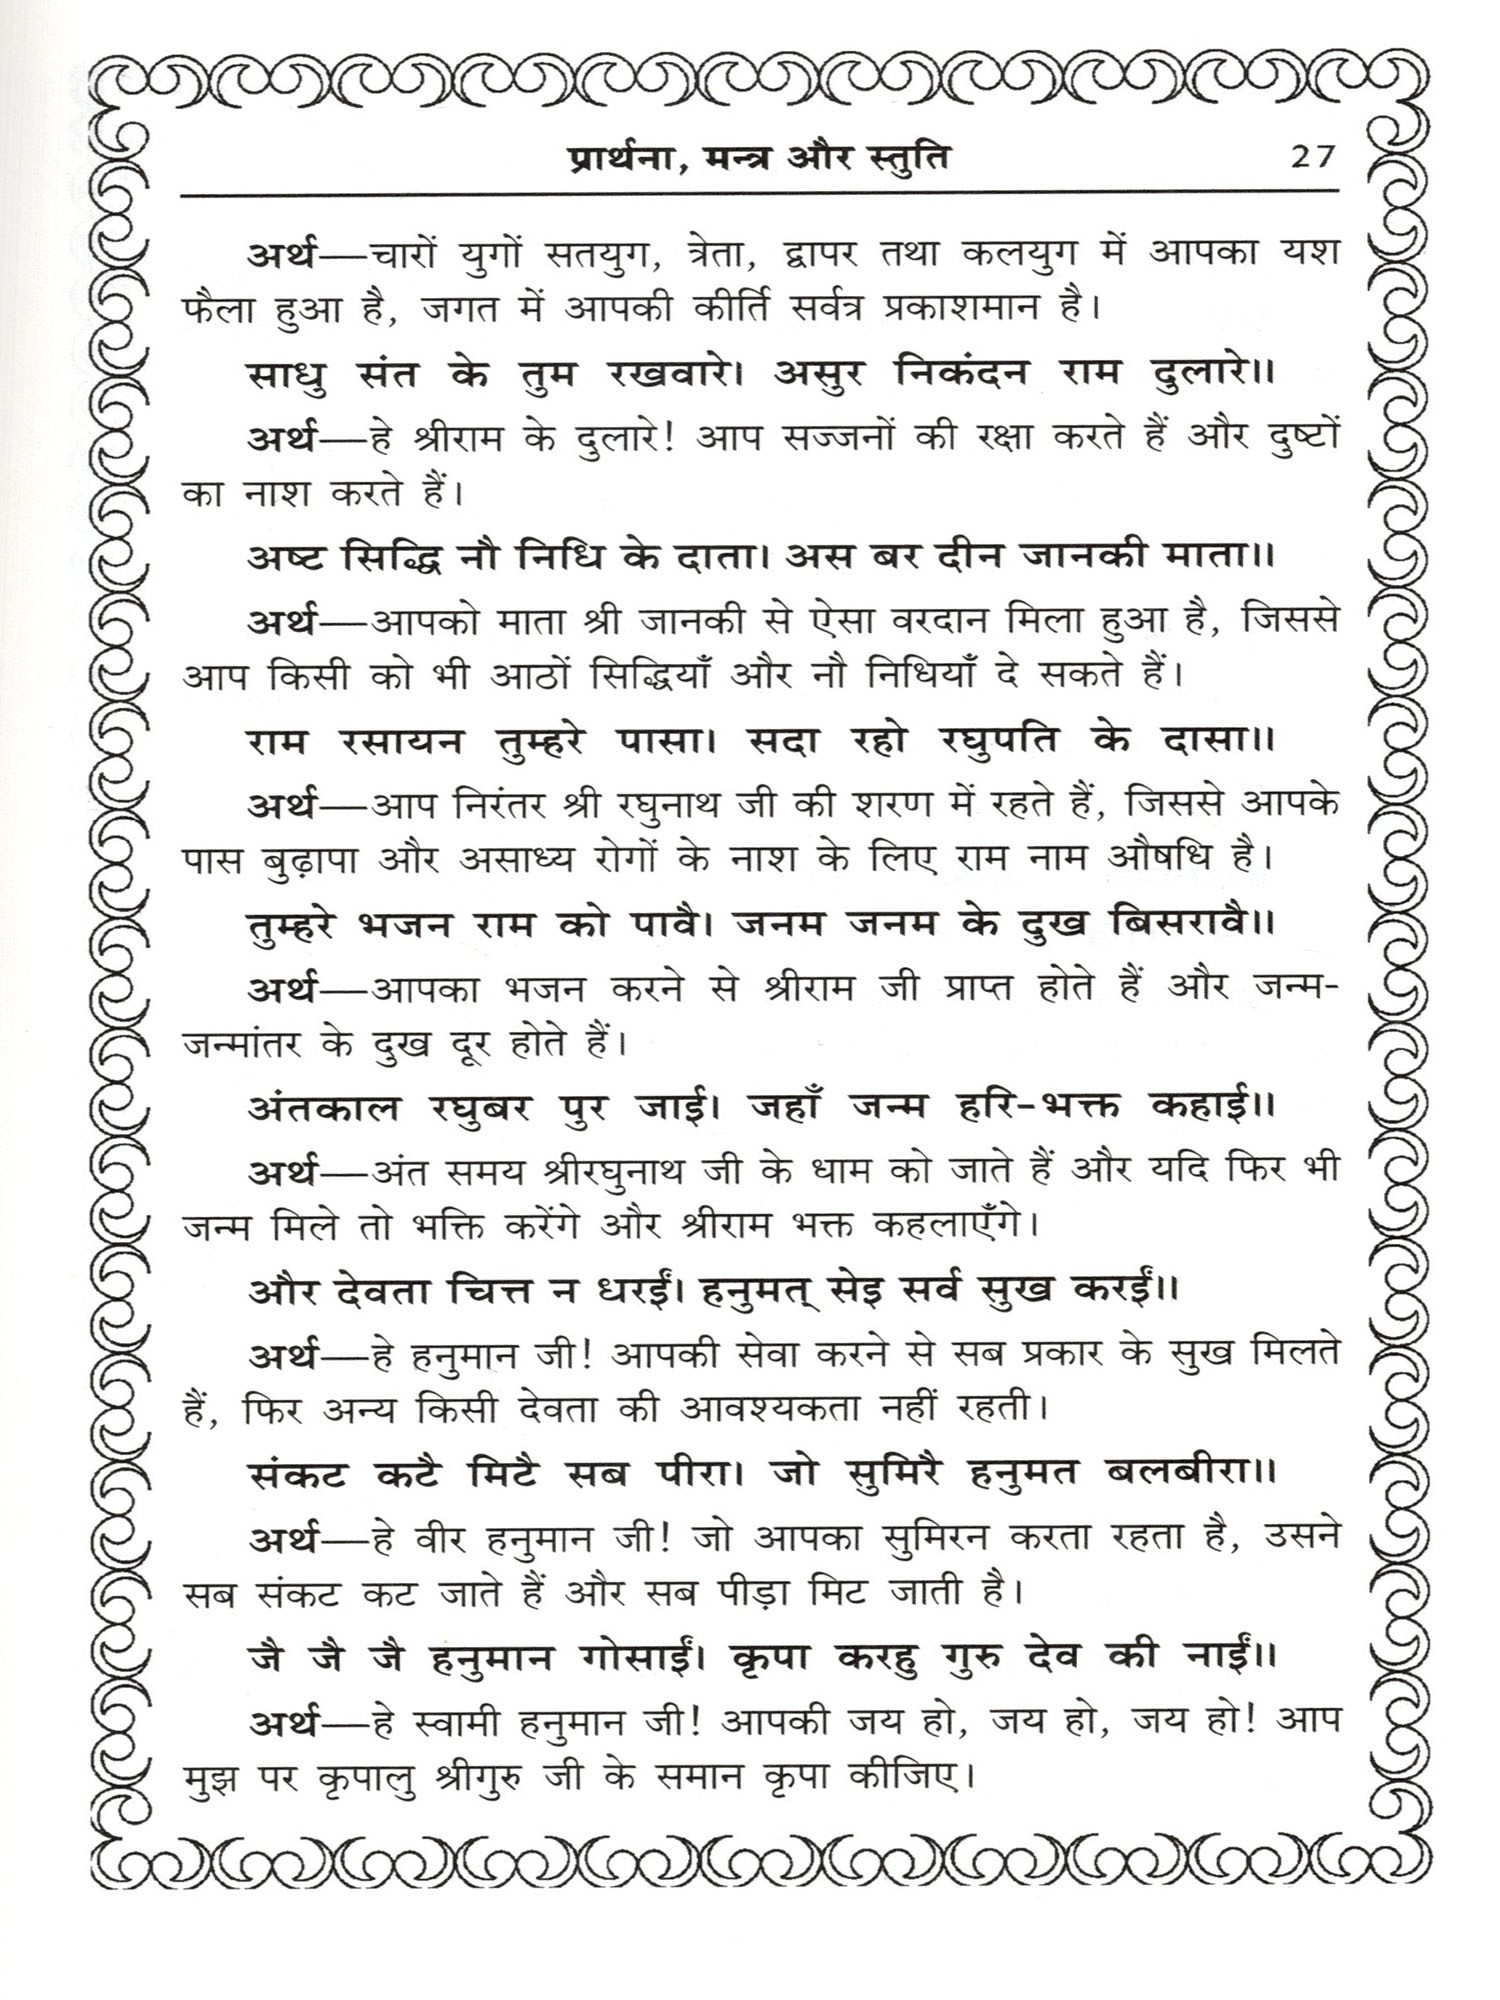 प्रार्थना, मन्त्र और स्तुति 27
अर्थ—चारों युगों सतयुग, त्रेता, द्वापर तथा कलयुग में आपका यश
फैला हुआ है, जगत में आपकी कीर्ति सर्वत्र प्रकाशमान है।
साधु संत के तुम रखवारे। असुर निकंदन राम दुलारे॥
अर्थ—हे श्रीराम के दुलारे! आप सज्जनों की रक्षा करते हैं और दुष्टों
का नाश करते हैं।
अष्ट सिद्धि नौ निधि के दाता। अस बर दीन जानकी माता॥
अर्थ—आपको माता श्री जानकी से ऐसा वरदान मिला हुआ है, जिससे
आप किसी को भी आठों सिद्धियाँ और नौ निधियाँ दे सकते हैं।
राम रसायन तुम्हरे पासा। सदा रहो रघुपति के दासा॥
अर्थ—आप निरंतर श्री रघुनाथ जी की शरण में रहते हैं, जिससे आपके
पास बुढ़ापा और असाध्य रोगों के नाश के लिए राम नाम औषधि है।
तुम्हरे भजन राम को पावै। जनम जनम के दुख बिसरावै॥
अर्थ—आपका भजन करने से श्रीराम जी प्राप्त होते हैं और जन्म-
जन्मांतर के दुख दूर होते हैं।
अंतकाल रघुबर पुर जाई। जहाँ जन्म हरि-भक्त कहाई॥
अर्थ—अंत समय श्रीरघुनाथ जी के धाम को जाते हैं और यदि फिर भी
जन्म मिले तो भक्ति करेंगे और श्रीराम भक्त कहलाएँगे।
और देवता चित्त न धरईं। हनुमत् सेइ सर्व सुख करईं॥
अर्थ—हे हनुमान जी! आपकी सेवा करने से सब प्रकार के सुख मिलते
हैं, फिर अन्य किसी देवता की आवश्यकता नहीं रहती।
संकट कटै मिटै सब पीरा। जो सुमिरै हनुमत बलबीरा॥
अर्थ—हे वीर हनुमान जी! जो आपका सुमिरन करता रहता है, उसने
सब संकट कट जाते हैं और सब पीड़ा मिट जाती है।
जै जै जै हनुमान गोसाईं। कृपा करहु गुरु देव की नाईं॥
अर्थ—हे स्वामी हनुमान जी! आपकी जय हो, जय हो, जय हो! आप
मुझ पर कृपालु श्रीगुरु जी के समान कृपा कीजिए।